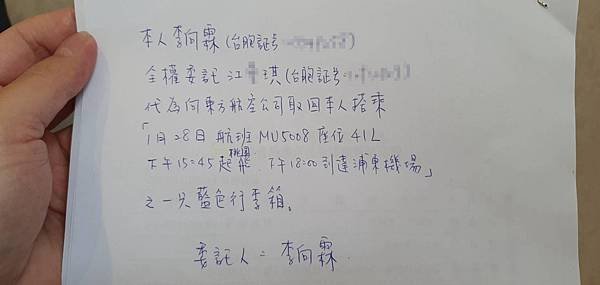 本人李向霖(台胞証号)
全權委託江琪(台胞証号)
代為向東方航空公司取回本人搭乘
「1月28日航班MU5008座位41L
下午15:45桃園起飛 下午18:00到達浦東機場」
之一只藍色行李箱。
委託人=李向霖